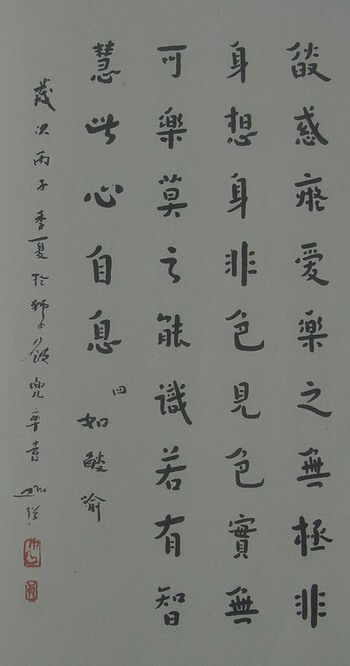 燄惑癡愛樂之無極非
身想身非色見色實無
可樂莫之能識若有智
慧此心自息
四 如燄喻
歲次丙子季夏於獅子嶺兜率書